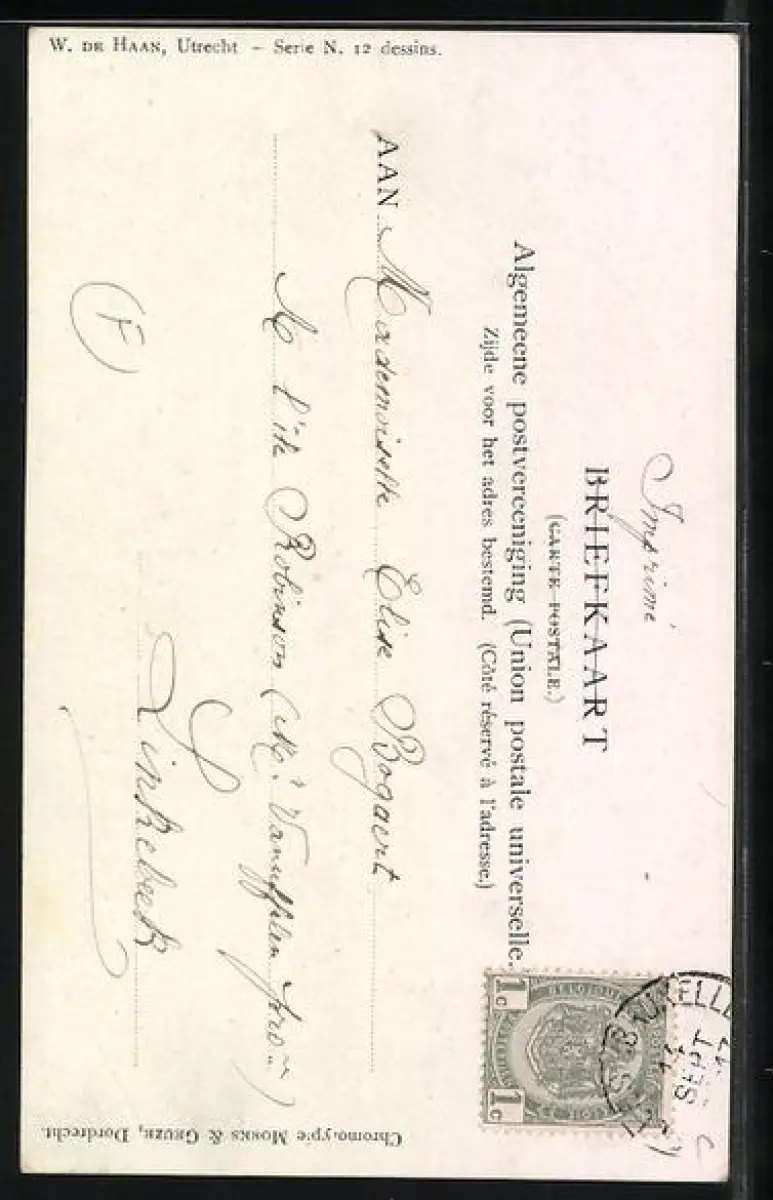 W. DE HAAN, Utrecht – Serie N. 12 dessins.
Imprimé
BRIEFKAART
(CARTE POSTALE.)
Algemeene postvereeniging (Union postale universelle.
Zijde voor het adres bestemd. (Côté réservé à l'adresse.)
AAN Mademoiselle Elise Bogaert
Robinson
Linkebeek
(F)
1c 1c
BRUXELLE
SEPT
Chromotypie MORKS & GEUZE, Dordrecht.